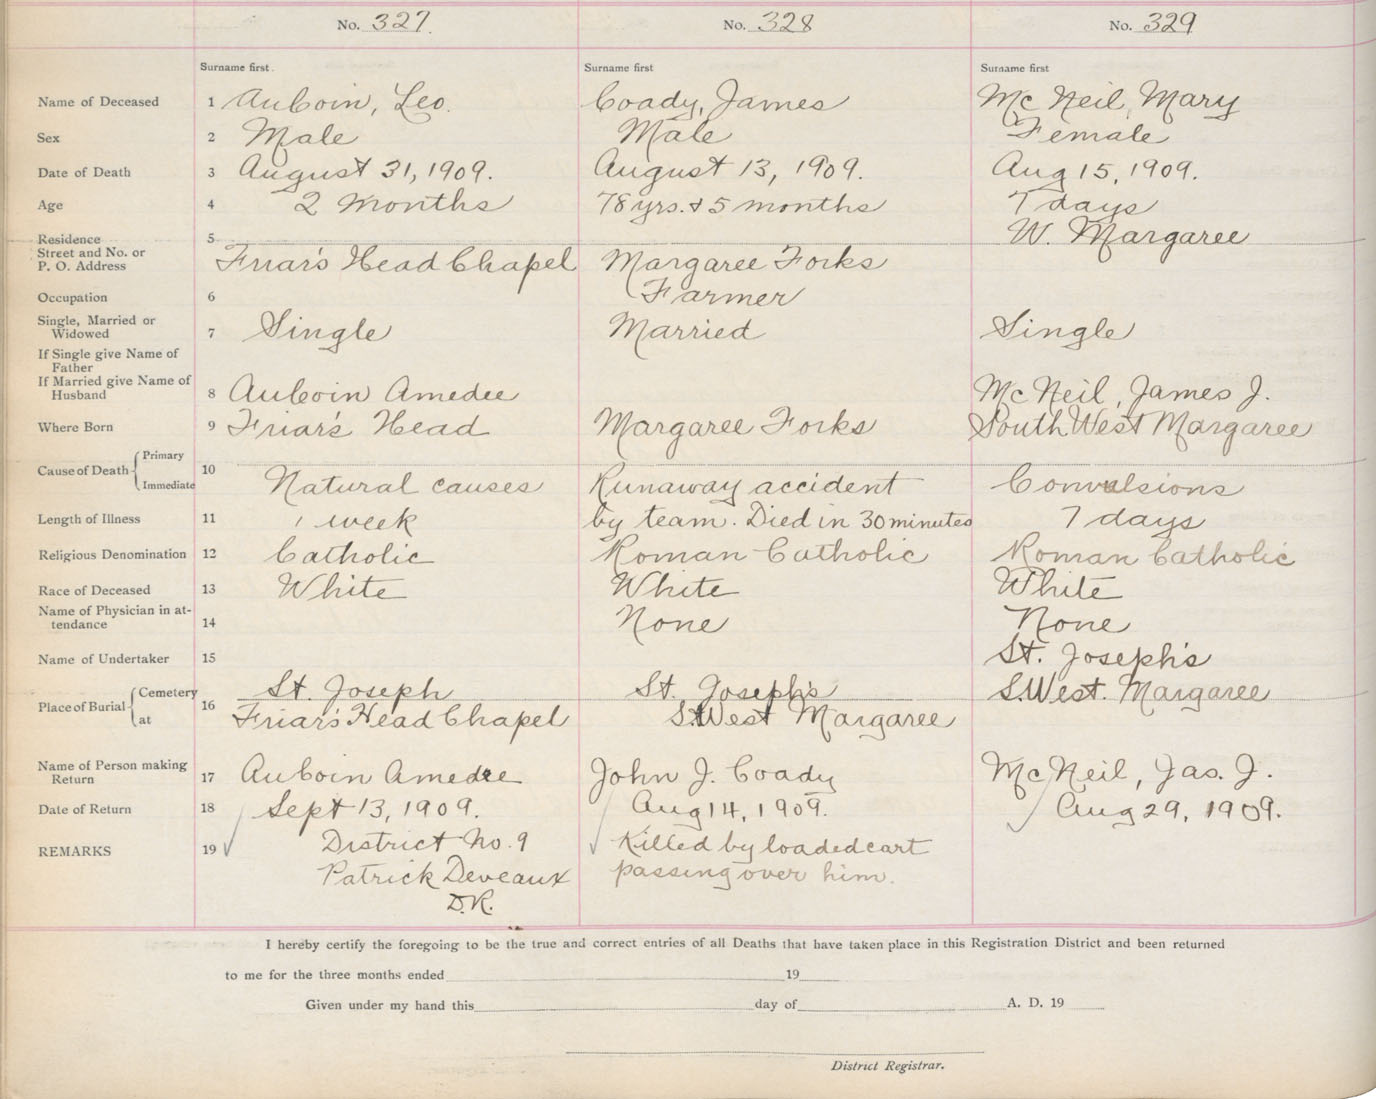 No. 327. No. 328 No. 329
Surname first. Surname first Surname first
Name of Deceased 1 AuCoin, Leo. Coady, James Mc Neil, Mary
Sex 2 Male Male Female
Date of Death 3 August 31, 1909. August 13, 1909. Aug 15, 1909.
Age 4 2 Months 78 yrs. & 5 months 7 days
Residence 5 W. Margaree
Street and No. or
P. O. Address Friar's Head Chapel Margaree Forks
Occupation 6 Farmer
Single, Married or
Widowed 7 Single Married Single
If Single give Name of
Father
If Married give Name of
Husband 8 AuCoin Amedee Mc Neil, James J.
Where Born 9 Friar's Head Margaree Forks South West Margaree
Cause of Death Primary 10
Immediate Natural causes Runaway accident Convulsions
Length of Illness 11 1 week by team. Died in 30 minutes 7 days
Religious Denomination 12 Catholic Roman Catholic Roman Catholic
Race of Deceased 13 White White White
Name of Physician in at-
tendance 14 None None
Name of Undertaker 15 St. Joseph's
Place of Burial Cemetery 16 St. Joseph St. Joseph's S. West. Margaree
at Friar's Head Chapel S. West Margaree
Name of Person making
Return 17 AuCoin Amedee John J. Coady McNeil, Jas. J.
Date of Return 18 Sept 13, 1909. Aug 14, 1909. Aug 29, 1909.
REMARKS 19 District No. 9 Killed by loaded cart
Patrick Deveaux passing over him.
D.R.
I hereby certify the foregoing to be the true and correct entries of all Deaths that have taken place in this Registration District and been returned
to me for the three months ended 19
Given under my hand this day of A. D. 19
District Registrar.